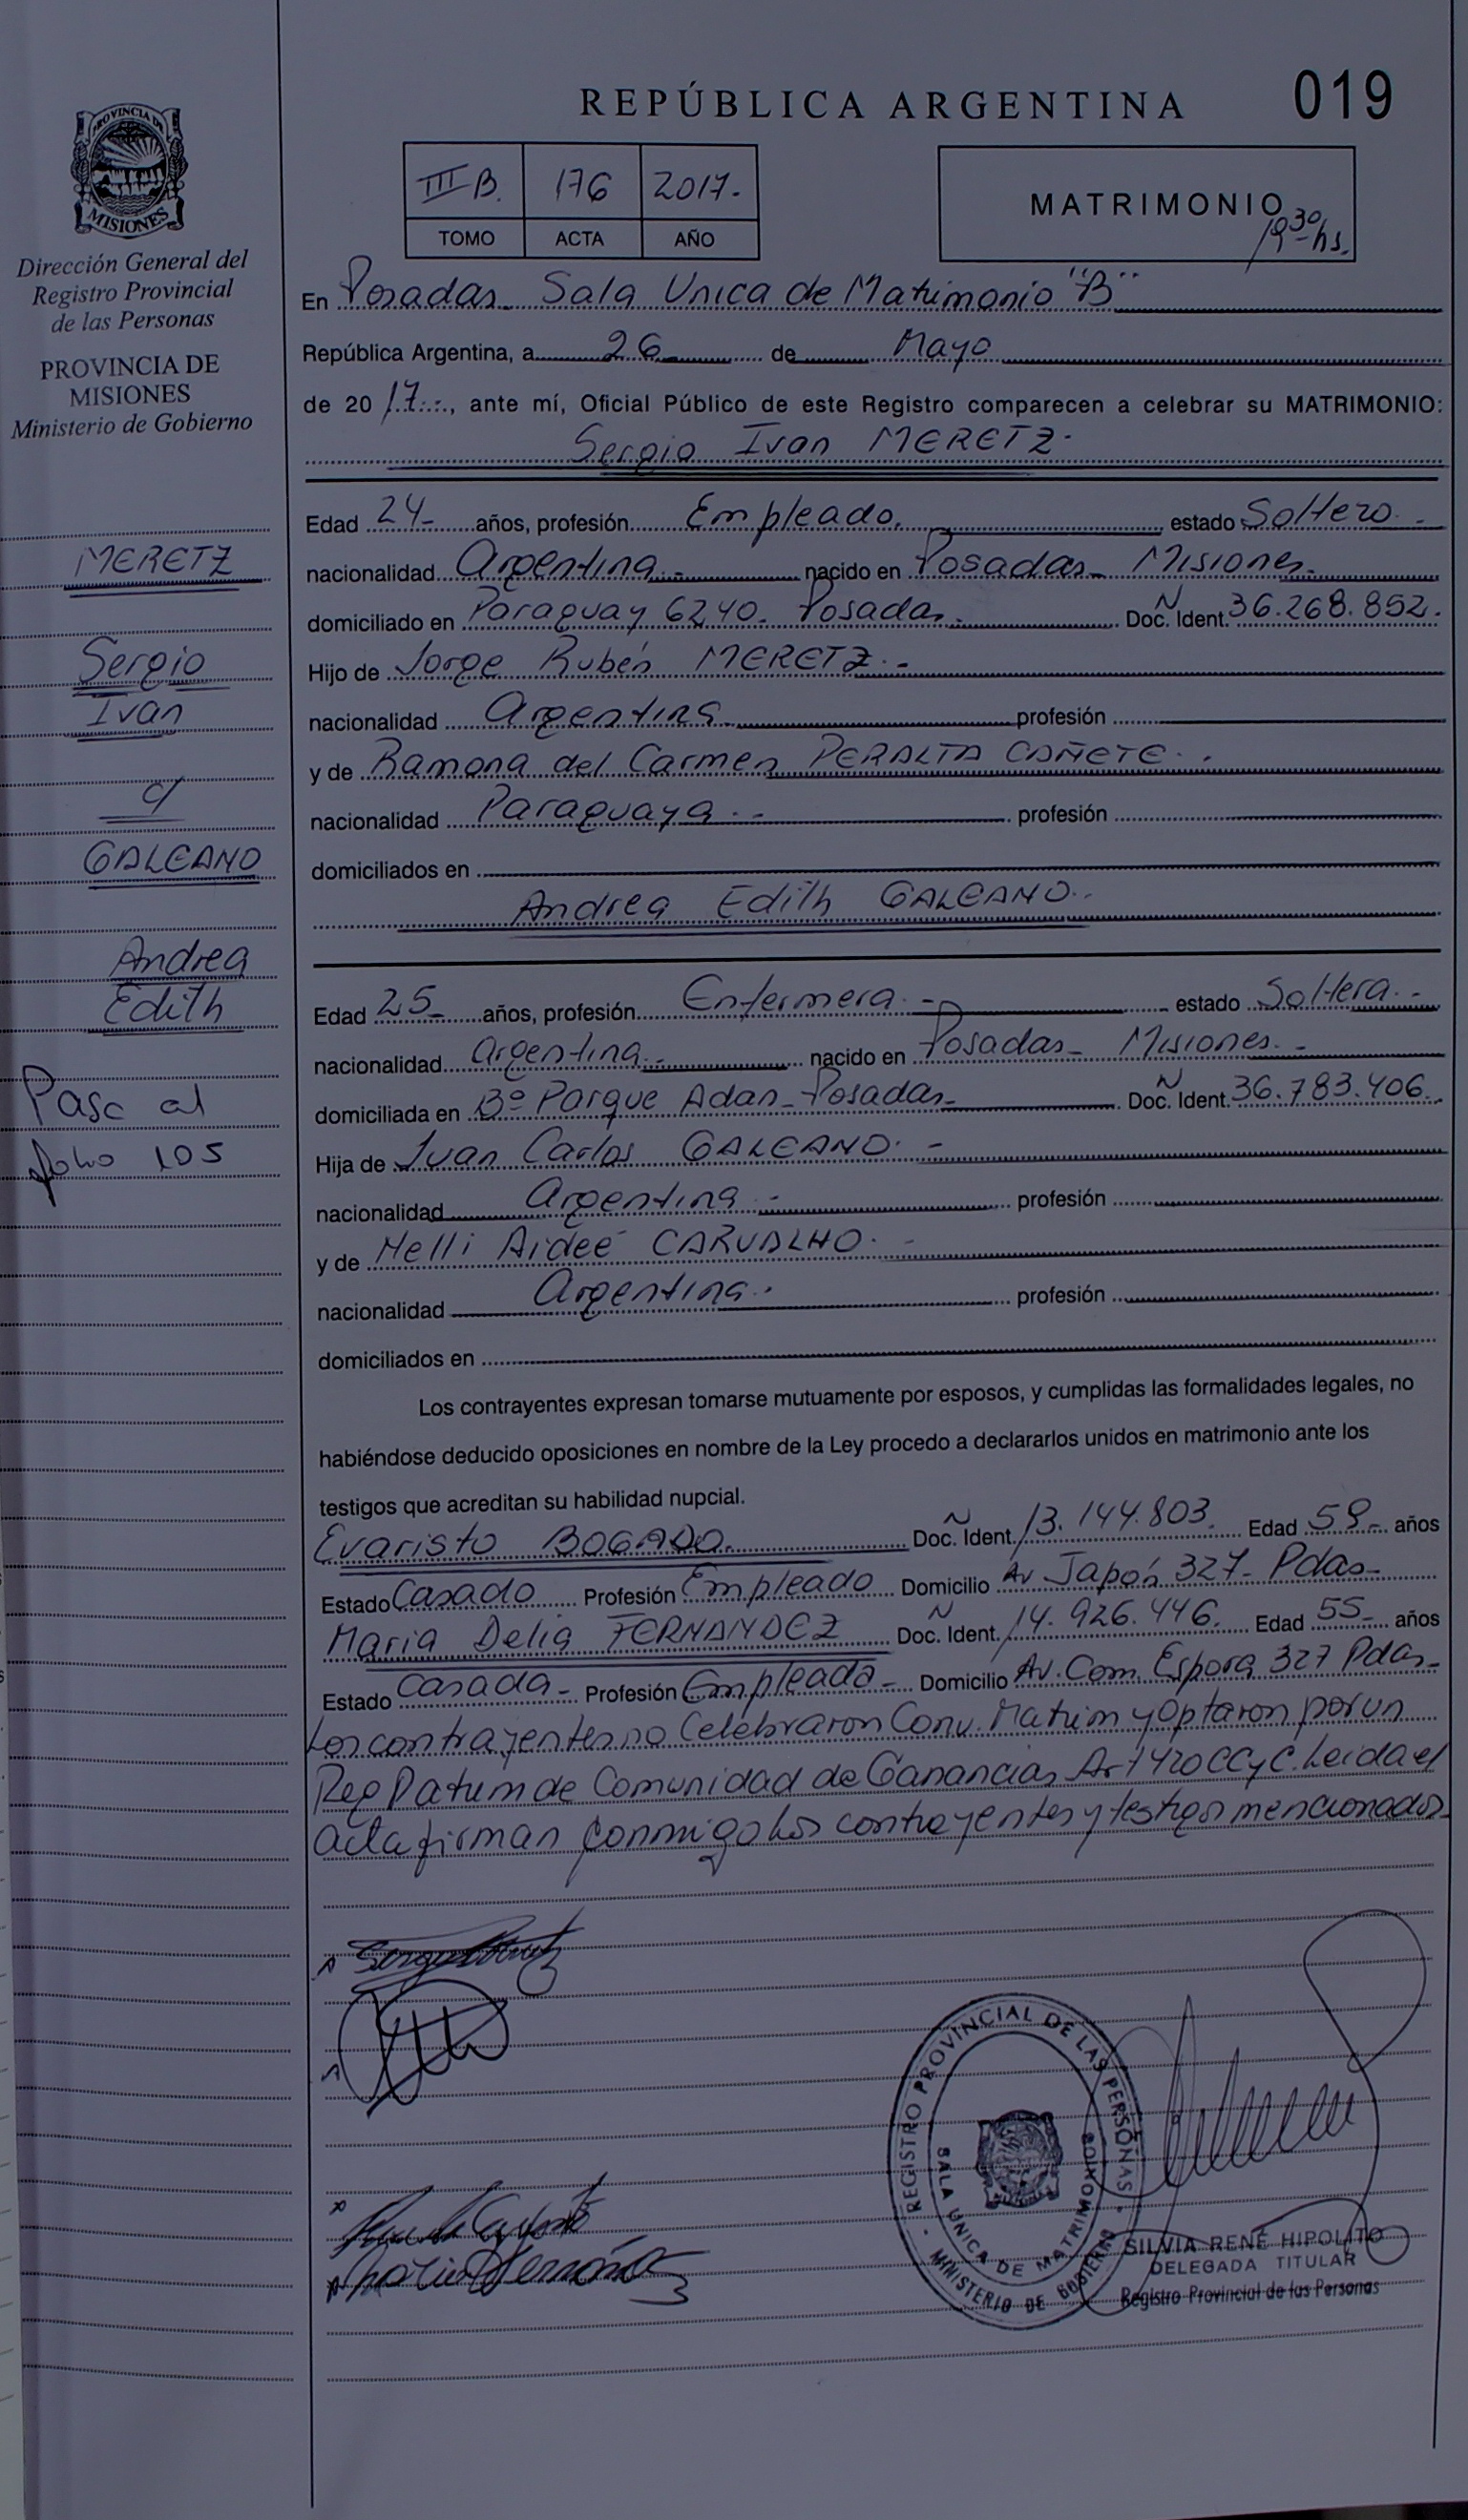 REPÚBLICA ARGENTINA 019
PROVINCIA DE
MISIONES
Dirección General del
Registro Provincial
de las Personas
PROVINCIA DE
MISIONES
Ministerio de Gobierno
III B. 176 2017.-
TOMO ACTA AÑO
MATRIMONIO
19 30 hs.
En Posadas Sala Unica de Matrimonio "B"
República Argentina, a 26 de Mayo
de 2017, ante mí, Oficial Público de este Registro comparecen a celebrar su MATRIMONIO:
Sergio Ivan MERETZ.-
Edad 24 años, profesión Empleado. estado Soltero.
nacionalidad Argentina.- nacido en Posadas Misiones.
domiciliado en Paraguay 6240. Posadas. Doc. Ident. 36.268.852.
Hijo de Jorge Rubén MERETZ.-
nacionalidad Argentina profesión
y de Ramona del Carmen PERALTA CAÑETE.
nacionalidad Paraguaya.- profesión
domiciliados en
Andrea Edith GALEANO.
Edad 25 años, profesión Enfermera.- estado Soltera.-
nacionalidad Argentina.- nacido en Posadas Misiones.-
domiciliada en Bº Parque Adan-Posadas Doc. Ident. 36.783.406.
Hija de Juan Carlos GALEANO.-
nacionalidad Argentina.- profesión
y de Nelli Aideé CARVALHO.-
nacionalidad Argentina. profesión
domiciliados en
Los contrayentes expresan tomarse mutuamente por esposos, y cumplidas las formalidades legales, no
habiéndose deducido oposiciones en nombre de la Ley procedo a declararlos unidos en matrimonio ante los
testigos que acreditan su habilidad nupcial.
Evaristo BOGADO. Doc. Ident. 13.144.803. Edad años
Estado Casado Profesión Empleado Domicilio Av Japón 327- Pdas-
Maria Delia FERNANDEZ Doc. Ident. 14.926.446. Edad 55 años
Estado Casada- Profesión Empleada- Domicilio Av. Com. Espora 327 Pdas-
Los contrayentes no Celebraron Conv. Matrim y Optaron por un
Reg Patrim de Comunidad de Ganancias Art 420 CCyC. Leida el
acta firman conmigo los contrayentes y testigos mencionados
MERETZ
Sergio
Ivan
c/
GALEANO
Andrea
Edith
Pasa al
folio 105
REGISTRO PROVINCIAL DE LAS PERSONAS
SALA UNICA DE MATRIMONIOS
MINISTERIO DE GOBIERNO
SILVIA RENÉ HIPOLITO
DELEGADA TITULAR
Registro Provincial de las Personas